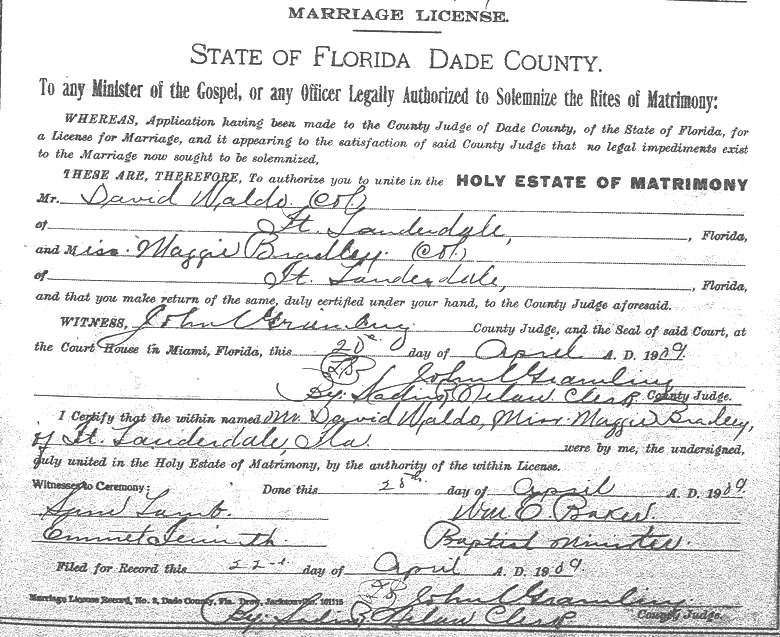 MARRIAGE LICENSE.
STATE OF FLORIDA DADE COUNTY.
To any Minister of the Gospel, or any Officer Legally Authorized to Solemnize the Rites of Matrimony:
WHEREAS, Application having been made to the County Judge of Dade County, of the State of Florida, for
a License for Marriage, and it appearing to the satisfaction of said County Judge that no legal impediments exist
to the Marriage now sought to be solemnized,
THESE ARE, THEREFORE, To authorize you to unite in the HOLY ESTATE OF MATRIMONY
Mr. David Waldo (Col.)
of Ft. Lauderdale, Florida,
and Miss. Maggie Bradley. (Col.)
of Ft. Lauderdale, Florida,
and that you make return of the same, duly certified under your hand, to the County Judge aforesaid.
WITNESS, John C Gramling County Judge, and the Seal of said Court, at
the Court House in Miami, Florida, this 20th day of April A. D. 1909
John C Gramling
By: Clerk County Judge.
I Certify that the within named Mr. David Waldo, Miss. Maggie Bradley,
of Ft. Lauderdale, Fla were by me, the undersigned,
duly united in the Holy Estate of Matrimony, by the authority of the within License.
Witnesses to Ceremony: Done this 20th day of April A. D. 1909
Lamb. Wm. E Baker
Emmet Baptist Minister.
Filed for Record this 22 day of April A. D. 1909
John C Gramling
Marriage License Record, No. 2, Dade County, Fla. Drew, Jacksonville. County Judge.
By: Clerk